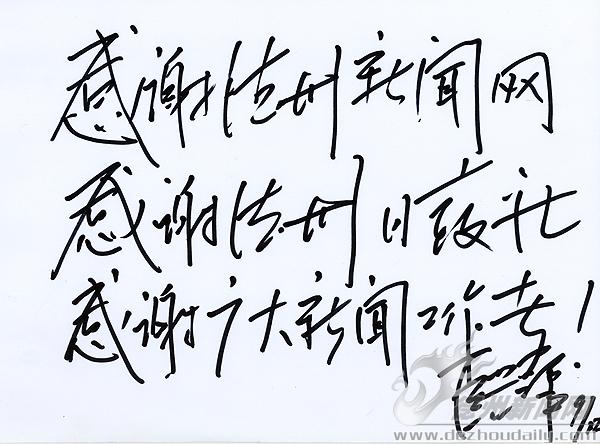 感谢德州新闻网
感谢德州日报社
感谢广大新闻工作者!
9/22
德州新闻网
www.dezhoudaily.com